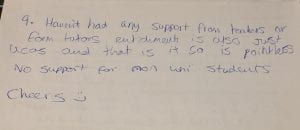 9. Havent had any support from teachers or
form tutors enrichment is also just
UCAS and that is it so is pointless
No support for non uni students
Cheers :)